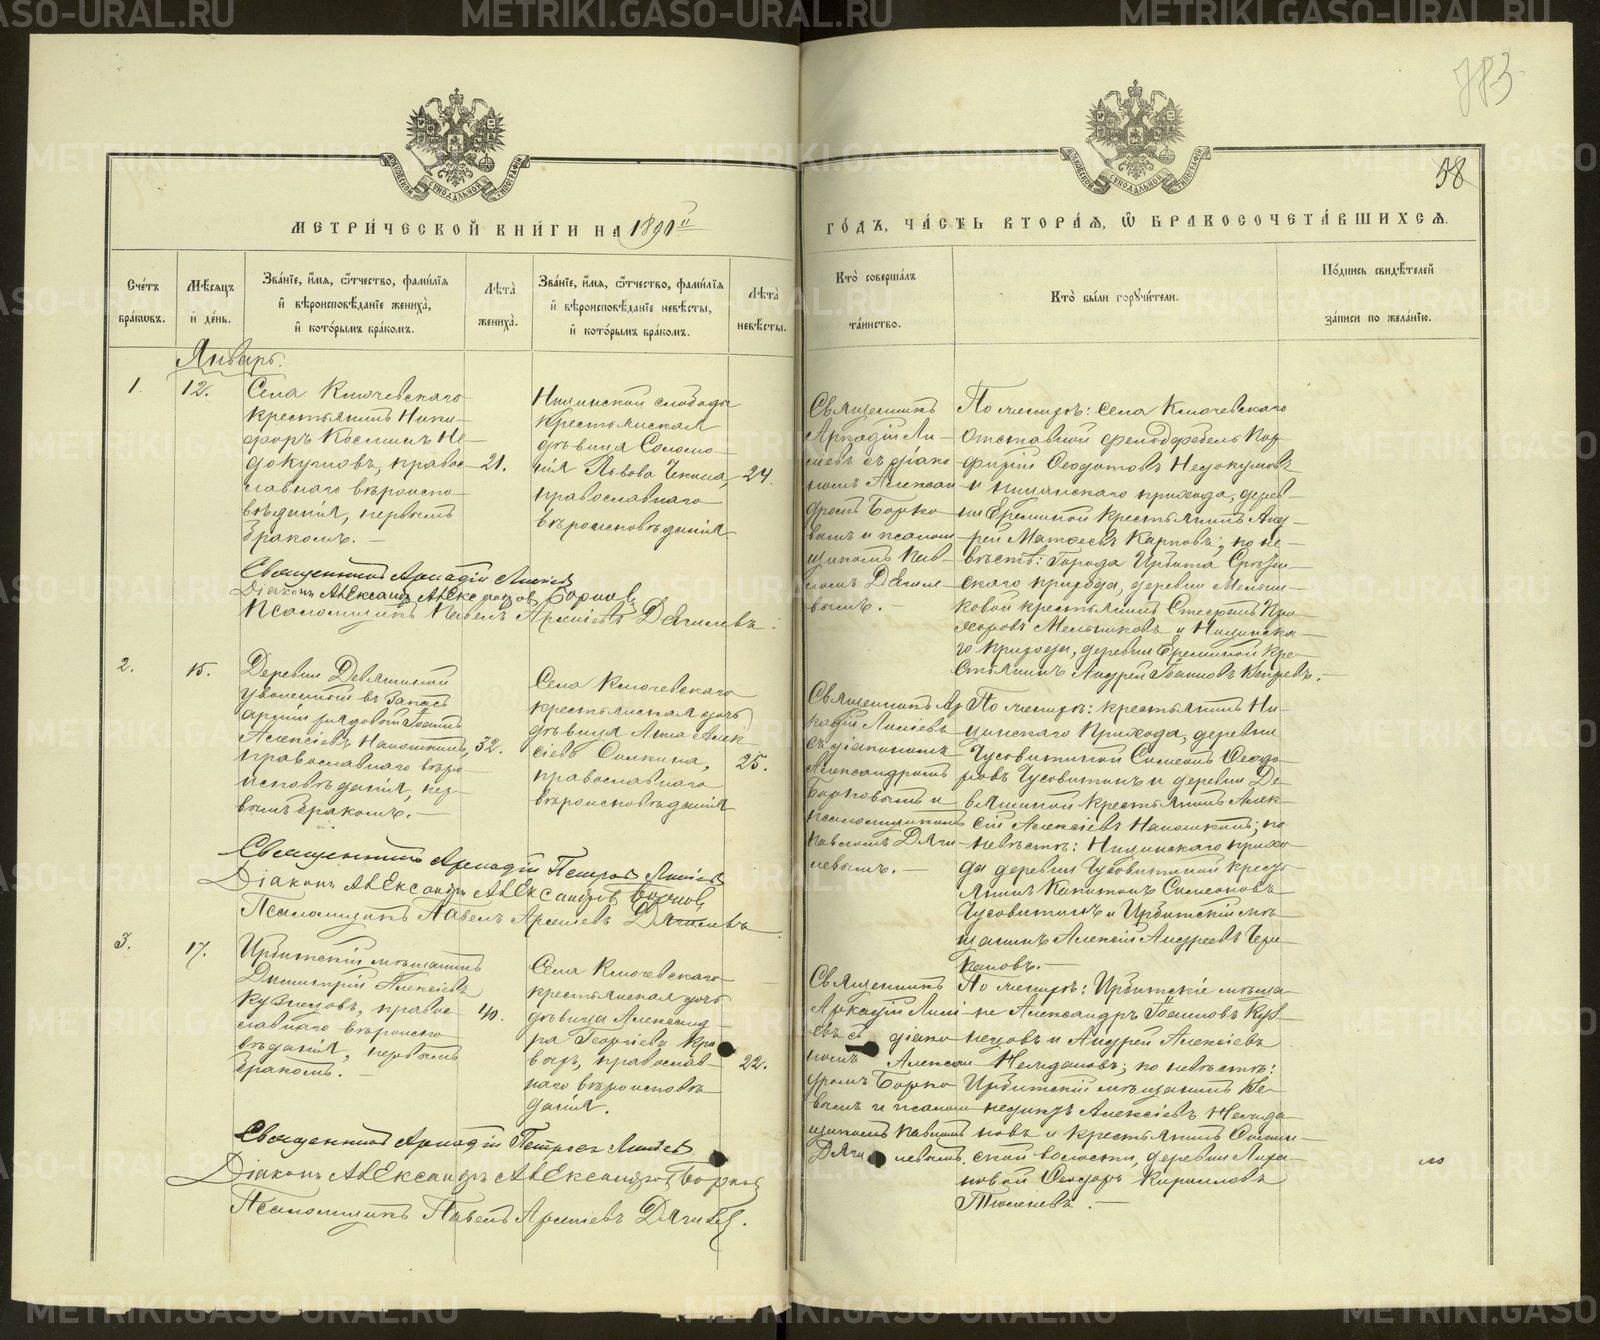 METRIKI.GASO-URAL.RU
783
58
МОСКОВСКОЙ СѴНОДАЛЬНОЙ ТИПОГРАФІИ
МЕТРИ́ЧЕСКОЙ КНИ́ГИ НА 1890й
ГО́ДЪ, ЧА́СТЬ ВТОРА́Я, Ѽ БРАКОСОЧЕТА́ВШИХСЯ.
Сче́тъ бра́кѡвъ.
Мѣ́сяцъ и҆ де́нь.
Зва́нїе, и҆́мя, ѻ҆́тчество, фами́лїя и҆ вѣроисповѣ́данїе жениха̀, и҆ кото́рымъ бра́комъ.
Лѣ́та жениха̀.
Зва́нїе, и҆́мя, ѻ҆́тчество, фами́лїя и҆ вѣроисповѣ́данїе невѣ́сты, и҆ кото́рымъ бра́комъ.
Лѣ́та невѣ́сты.
Кто̀ соверша́лъ та́инство.
Кто̀ бы́ли поручи́тели.
По́дпись свидѣ́телей за́писи по жела́нїю.
Январь.
1.
12.
Села Ключевскаго
крестьянинъ Ники-
форъ Косминъ Не-
докушовъ, правос-
лавнаго вѣроиспо-
вѣданія, первымъ
бракомъ. —
21.
Ницинской слободы
крестьянская
дѣвица Соломо-
нія Львова Чекина,
православнаго
вѣроисповѣданія
24.
Священникъ
Аркадій Ли-
сіевъ съ діако-
номъ Алексан
дромъ Борко
вымъ и псалом
щикомъ Пав-
ломъ Дягиле
вымъ. —
По женихѣ: села Ключевскаго
отставной фельдфебель Пор-
фирій Ѳеодотовъ Недокушовъ
и Ницинскаго прихода, дерев-
ни Ереминой крестьянинъ Анд-
рей Матѳеевъ Карповъ; по не-
вѣстѣ: города Ирбита Срѣтен-
скаго прихода, деревни Мельни-
ковой крестьянинъ Стефанъ Про
хоровъ Мельниковъ и Ницинска-
го прихода, деревни Ереминой кре-
стьянинъ Андрей Іоанновъ
Священникъ Аркадій Лисіевъ
Діаконъ Александръ Александровъ Борковъ
Псаломщикъ Павелъ Арсеніевъ Дягилевъ.
2.
15.
Деревни Девяшиной
уволенный въ запасъ
арміи рядовой Іоаннъ
Алексіевъ Напошкинъ,
православнаго вѣро
исповѣданія, пер-
вымъ бракомъ. —
32.
Села Ключевскаго
крестьянская дочь
дѣвица Анна Алек
сіева Сомкина,
православнаго
вѣроисповѣданія
25.
Священникъ Ар
кадій Лисіевъ
съ діакономъ
Александромъ
Борковымъ и
псаломщикомъ
Павломъ Дяги-
левымъ. —
По женихѣ: крестьянинъ Ни-
цинскаго прихода, деревни
Чусовитиной Симеонъ Ѳеодо-
ровъ Чусовитинъ и деревни Де-
вяшиной крестьянинъ Алек-
сій Алексіевъ Напошкинъ; по
невѣстѣ: Ницинскаго прихо-
да деревни Чусовитиной кресть
янинъ Капитонъ Симеоновъ
Чусовитинъ и Ирбитскій мѣ-
щанинъ Алексій Андреевъ
Священникъ Аркадій Петровъ Лисіевъ
Діаконъ Александръ Александровъ Борковъ
Псаломщикъ Павелъ Арсеніевъ Дягилевъ
3.
17.
Ирбитскій мѣщанинъ
Димитрій Алексіевъ
Кузнецовъ, правос
лавнаго вѣроиспо
вѣданія, первымъ
бракомъ. —
40.
Села Ключевскаго
крестьянская дочь
дѣвица Александ-
ра Георгіева
православ-
наго вѣроисповѣ
данія.
22.
Священникъ
Аркадій Лисі
евъ съ діако
номъ Алексан
дромъ Борко
вымъ и псалом
щикомъ Павломъ
Дягилевымъ.
По женихѣ: Ирбитскіе мѣща-
не Александръ Іоанновъ Куз-
нецовъ и Андрей Алексіевъ
Нелидановъ; по невѣстѣ:
Ирбитскій мѣщанинъ Ве-
недиктъ Алексіевъ Нелида
новъ и крестьянинъ
ской волости, деревни
новой Ѳеодоръ Кирилловъ
Священникъ Аркадій Петровъ Лисіевъ
Діаконъ Александръ Александровъ Борковъ
Псаломщикъ Павелъ Арсеніевъ Дягилевъ.